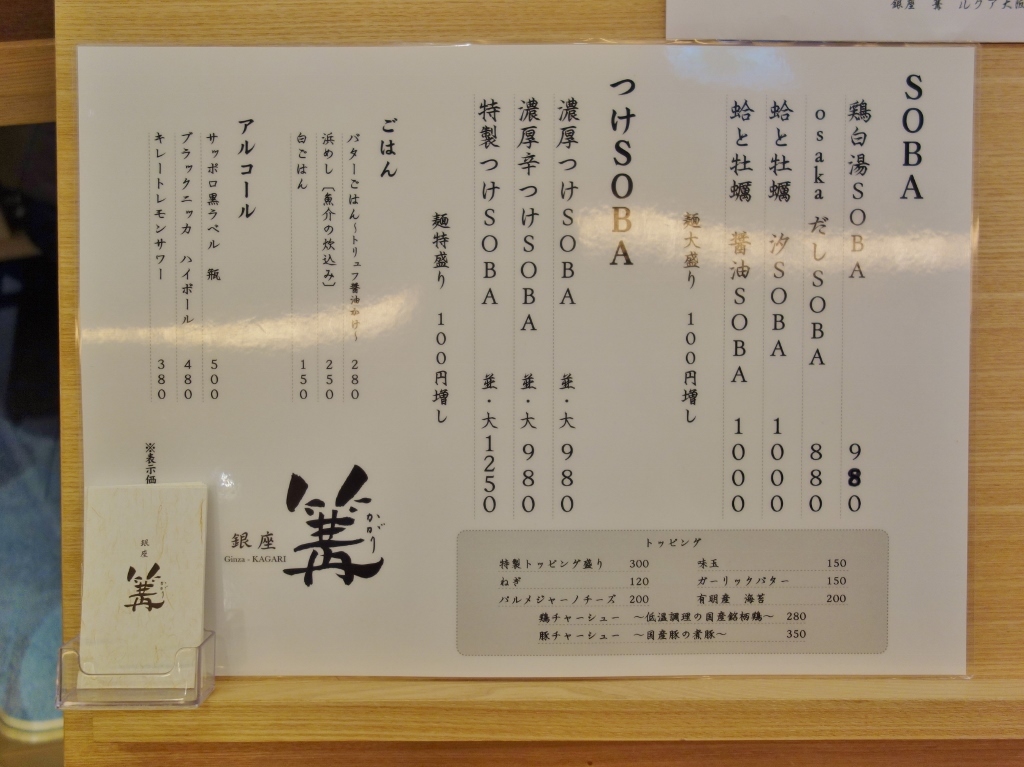 銀座 篝 ルクア大阪
SOBA
鶏白湯SOBA 980
osakaだしSOBA 880
蛤と牡蠣 汐SOBA 1000
蛤と牡蠣 醤油SOBA 1000
麺大盛り 100円増し
つけSOBA
濃厚つけSOBA 並・大 980
濃厚辛つけSOBA 並・大 980
特製つけSOBA 並・大 1250
麺特盛り 100円増し
ごはん
バターごはん〜トリュフ醤油かけ〜 280
浜めし〔魚介の炊込み〕 250
白ごはん 150
アルコール
サッポロ黒ラベル 瓶 500
ブラックニッカ ハイボール 480
キレートレモンサワー 380
※表示価
銀座
Ginza - KAGARI
篝
かがり
トッピング
特製トッピング盛り 300 味玉 150
ねぎ 120 ガーリックバター 150
パルメジャーノチーズ 200 有明産 海苔 200
鶏チャーシュー 〜低温調理の国産銘柄鶏〜 280
豚チャーシュー 〜国産豚の煮豚〜 350
銀座
篝
かがり